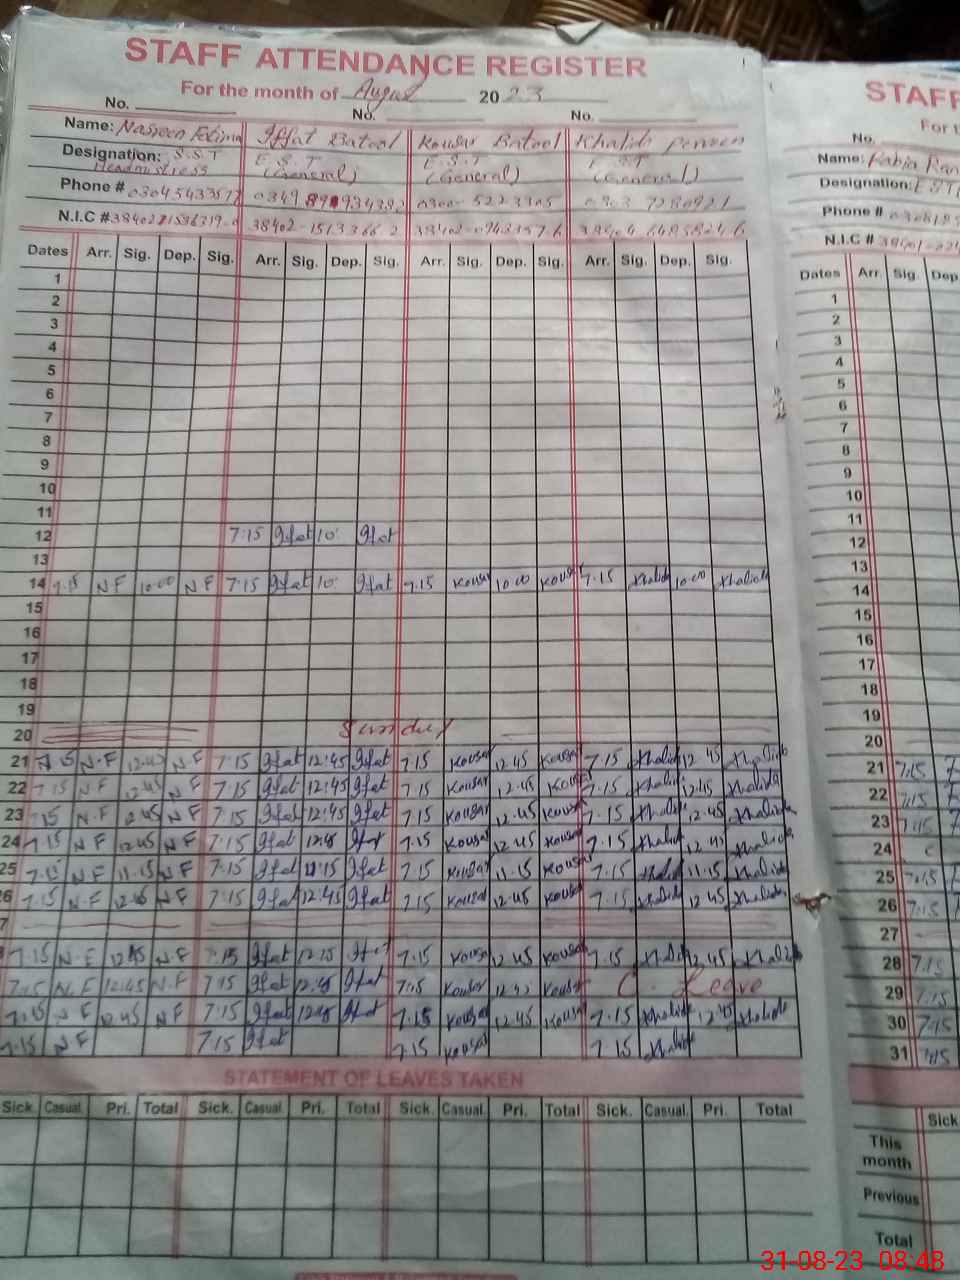 STAFF ATTENDANCE REGISTER
For the month of August 2023
No. No. No.
Name: Nasreen Fatima Iffat Batool Kousar Batool Khalida Perveen
Designation: S.S.T Headmistress E.S.T (General) E.S.T (General) E.S.T (General)
Phone # 0300-5223305
N.I.C #
Dates Arr. Sig. Dep. Sig. Arr. Sig. Dep. Sig. Arr. Sig. Dep. Sig. Arr. Sig. Dep. Sig.
1
2
3
4
5
6
7
8
9
10
11
12 7:15 Iffat 10: Iffat
13
14 7.15 N F 10:00 N F 7:15 Iffat 10: Iffat 7.15 Kousar 10 00 Kousar 7.15 Khalida 10:00 Khalida
15
16
17
18
19
20 Sunday
21 7 15 N.F 12:45 N F 7:15 Iffat 12:45 Iffat 7.15 Kousar 12 45 Kousar 7.15 Khalida 12 45 Khalida
22 7 15 N.F 12 45 N F 7:15 Iffat 12:45 Iffat 7.15 Kousar 12.45 Kousar 7.15 Khalida 12.45 Khalida
23 7.15 N.F 12 45 N F 7:15 Iffat 12:45 Iffat 7.15 Kousar 12.45 Kousar 7.15 Khalida 12.45 Khalida
24 7.15 N F 12.45 N F 7:15 Iffat 12:45 Iffat 7.15 Kousar 12 45 Kousar 7.15 Khalida 12 45 Khalida
25 7.15 N F 11.15 N F 7:15 Iffat 11:15 Iffat 7.15 Kousar 11.15 Kousar 7.15 Khalida 11.15 Khalida
26 7.15 N.F 12.45 N F 7:15 Iffat 12:45 Iffat 7.15 Kousar 12.45 Kousar 7.15 Khalida 12 45 Khalida
7
7.15 N.F 12 45 N.F 7:15 Iffat 12:15 Iffat 7.15 Kousar 12.45 Kousar 7.15 Khalida 12.45 Khalida
7:15 N.F 12:45 N.F 7:15 Iffat 12:45 Iffat 7:15 Kousar 12.45 Kousar C. Leave
7.15 N F 12.45 N F 7:15 Iffat 12:45 Iffat 7.15 Kousar 12.45 Kousar 7.15 Khalida 12.45 Khalida
7.15 N F 7:15 Iffat 7.15 Kousar 7 15 Khalida
STATEMENT OF LEAVES TAKEN
Sick. Casual. Pri. Total Sick. Casual. Pri. Total Sick. Casual. Pri. Total Sick. Casual. Pri. Total
STAFF
For t
No.
Name: Rabia
Designation: E.S.T
Phone #
N.I.C #
Dates Arr. Sig. Dep
1
2
3
4
5
6
7
8
9
10
11
12
13
14
15
16
17
18
19
20
21 7:15
22 7:15
23 7:15
24 C
25 7:15
26 7:15
27
28 7.15
29 7:15
30 7:15
31 7:15
Sick
This month
Previous
Total
31-08-23 08:48